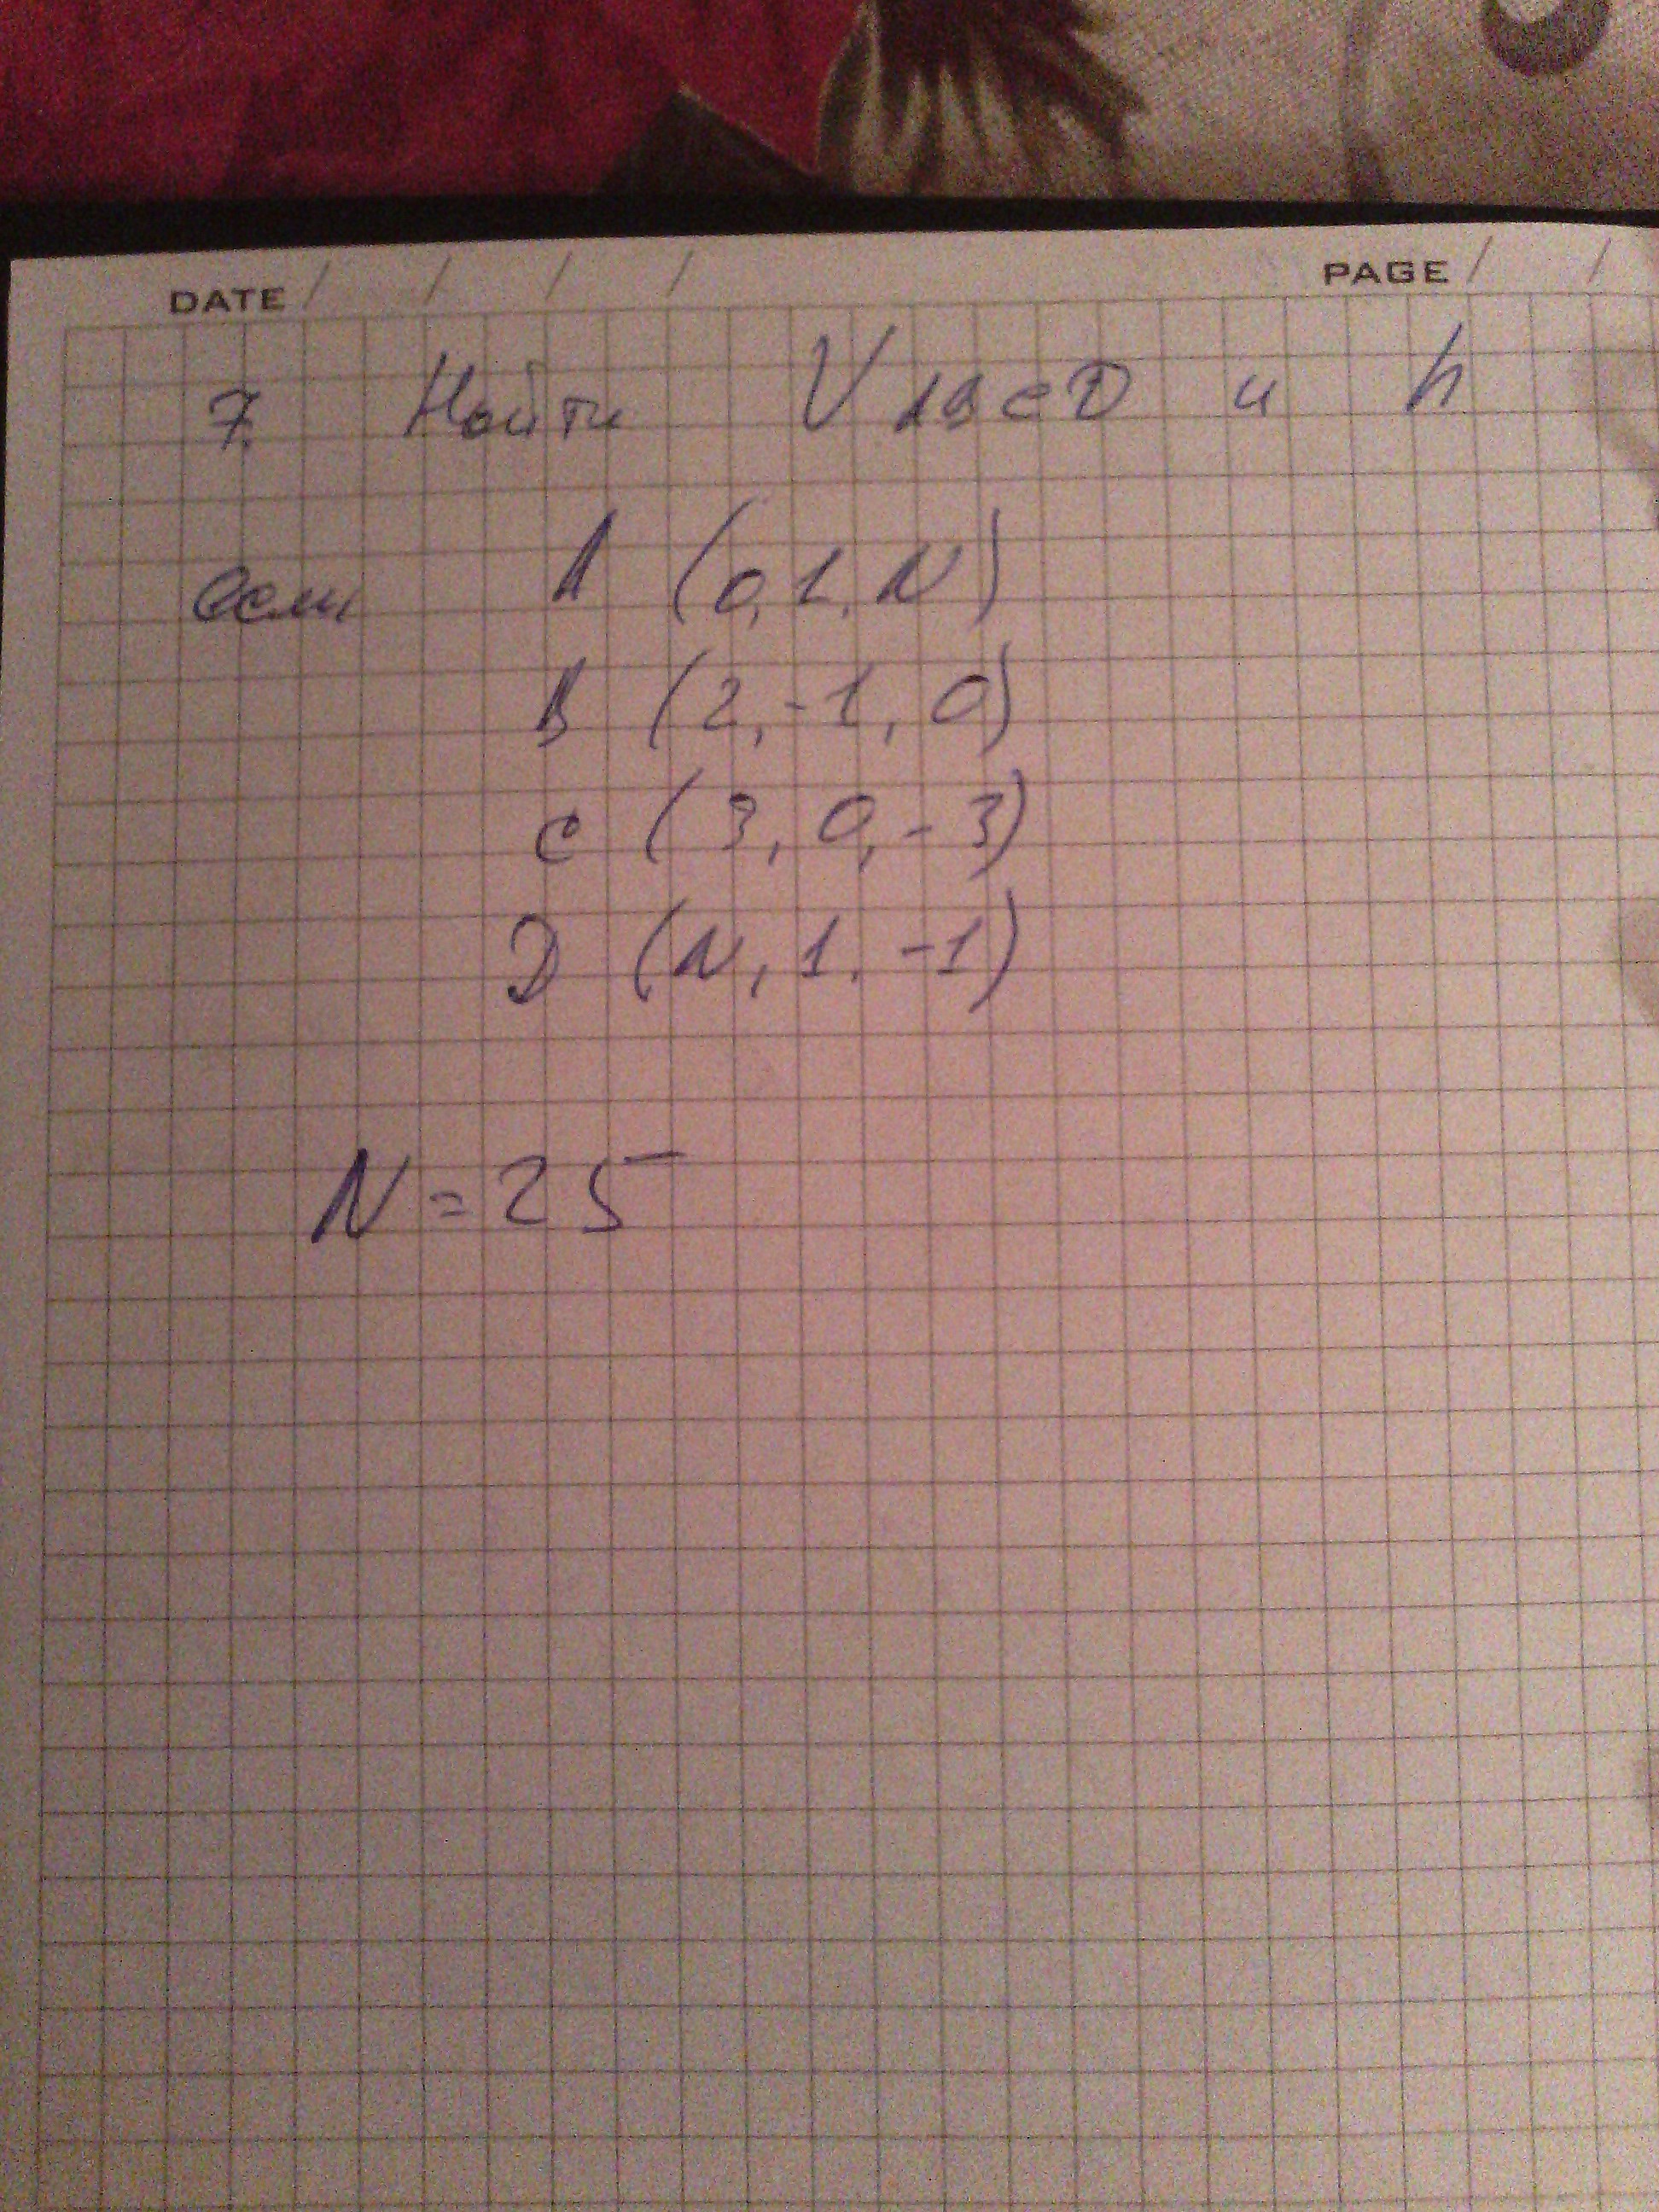 DATE / / / / PAGE / /
7. Найти V ABCD и h
если A (0, 1, N)
B (2, -1, 0)
C (3, 0, -3)
D (N, 1, -1)
N = 25